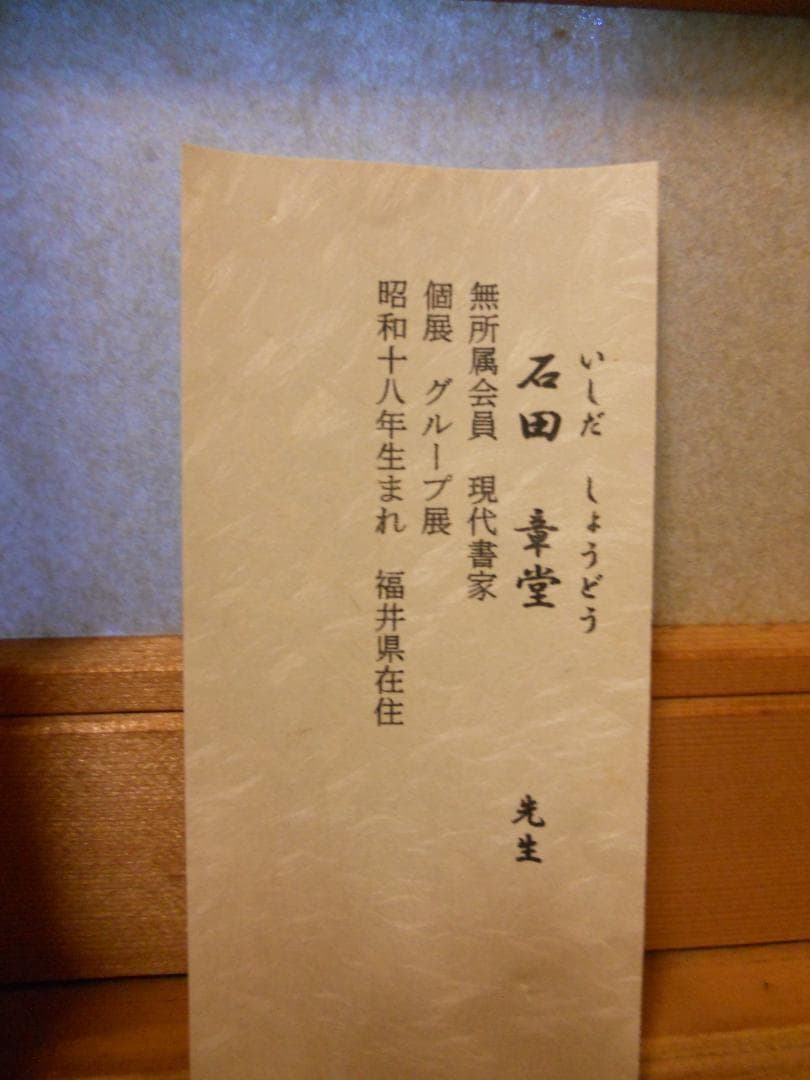 いしだ　しょうどう
石田　章堂　先生
無所属会員　現代書家
個展　グループ展
昭和十八年生まれ　福井県在住